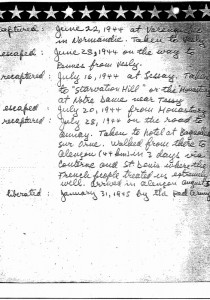 captured: June 22, 1944 at
in Normandie. Taken to
escaped: June 23, 1944 on the way
recaptured: July 16, 1944 at Sessay. Taken
to "Starvation Hill" or the Monastery
at Notre Dame near Tessy
escaped: July 20, 1944 from Monastery
recaptured: July 28, 1944 on the road to
Aunay. Taken to hotel at
sur Orne. Walked from there to
Alencon (44 km) in 2 days via
and St Denis where the
French people treated us extremely
well. Arrived in Alencon August
liberated: January 31, 1945 by the Red Army